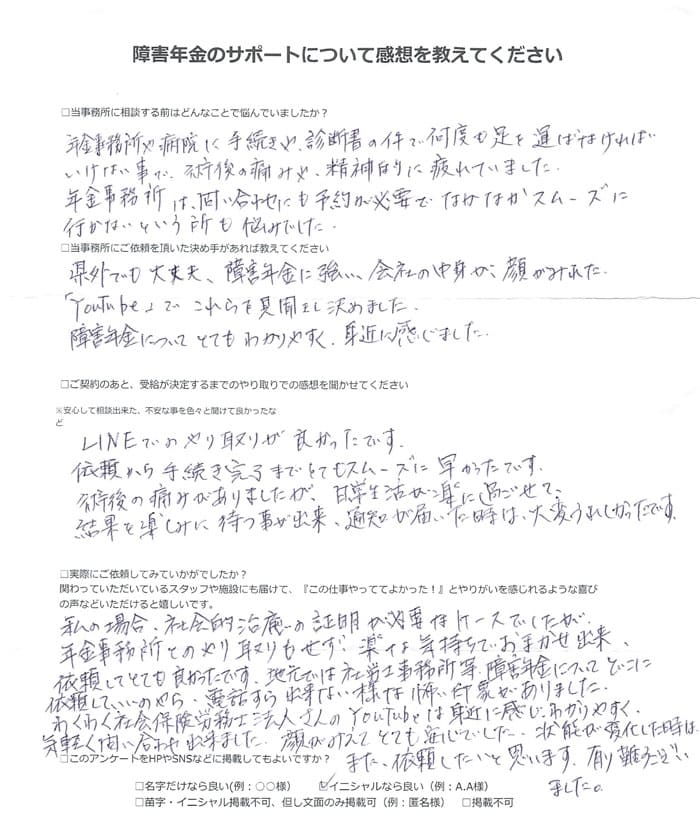 障害年金のサポートについて感想を教えてください
□当事務所に相談する前はどんなことで悩んでいましたか？
年金事務所や病院に手続きや、診断書の件で何度も足を運ばなければ
いけない事で、術後の痛みや、精神的に疲れていました。
年金事務所は、問い合わせにも予約が必要でなかなかスムーズに
行かないという所も悩みでした。
□当事務所にご依頼を頂いた決め手があれば教えてください
県外でも大丈夫、障害年金に強い、会社の中身が、顔がみれた。
「YouTube」でこれらを見聞きし決めました。
障害年金についてとてもわかりやすく、身近に感じました。
□ご契約のあと、受給が決定するまでのやり取りでの感想を聞かせてください
※安心して相談出来た、不安な事を色々と聞けて良かったな
ど
LINEでのやり取りが良かったです。
依頼から手続き完了までとてもスムーズに早かったです。
術後の痛みがありましたが、日常生活が楽に過ごせて、
結果を楽しみに待つ事が出来、通知が届いた時は、大変うれしかったです。
□実際にご依頼してみていかがでしたか？
関わっていただいているスタッフや施設にも届けて、『この仕事やっててよかった！』とやりがいを感じれるような喜び
の声などいただけると嬉しいです。
私の場合、社会的治癒の証明が必要なケースでしたが、
年金事務所とのやり取りもせず、楽な気持ちでおまかせ出来、
依頼してとても良かったです。地元では社労士事務所等、障害年金についてどこに
依頼していいのやら、電話すら出来ない様な怖い印象がありました。
わくわく社会保険労務士法人さんのYouTubeは身近に感じ、わかりやすく、
気軽く問い合わせ出来ました。顔がみえてとても安心でした。状態が変化した時は
□このアンケートをHPやSNSなどに掲載してもよいですか？
また、依頼したいと思います。有難うござい
ました。
□名字だけなら良い(例：〇〇様) ☑イニシャルなら良い（例：A.A様）
□苗字・イニシャル掲載不可、但し文面のみ掲載可（例：匿名様） □掲載不可